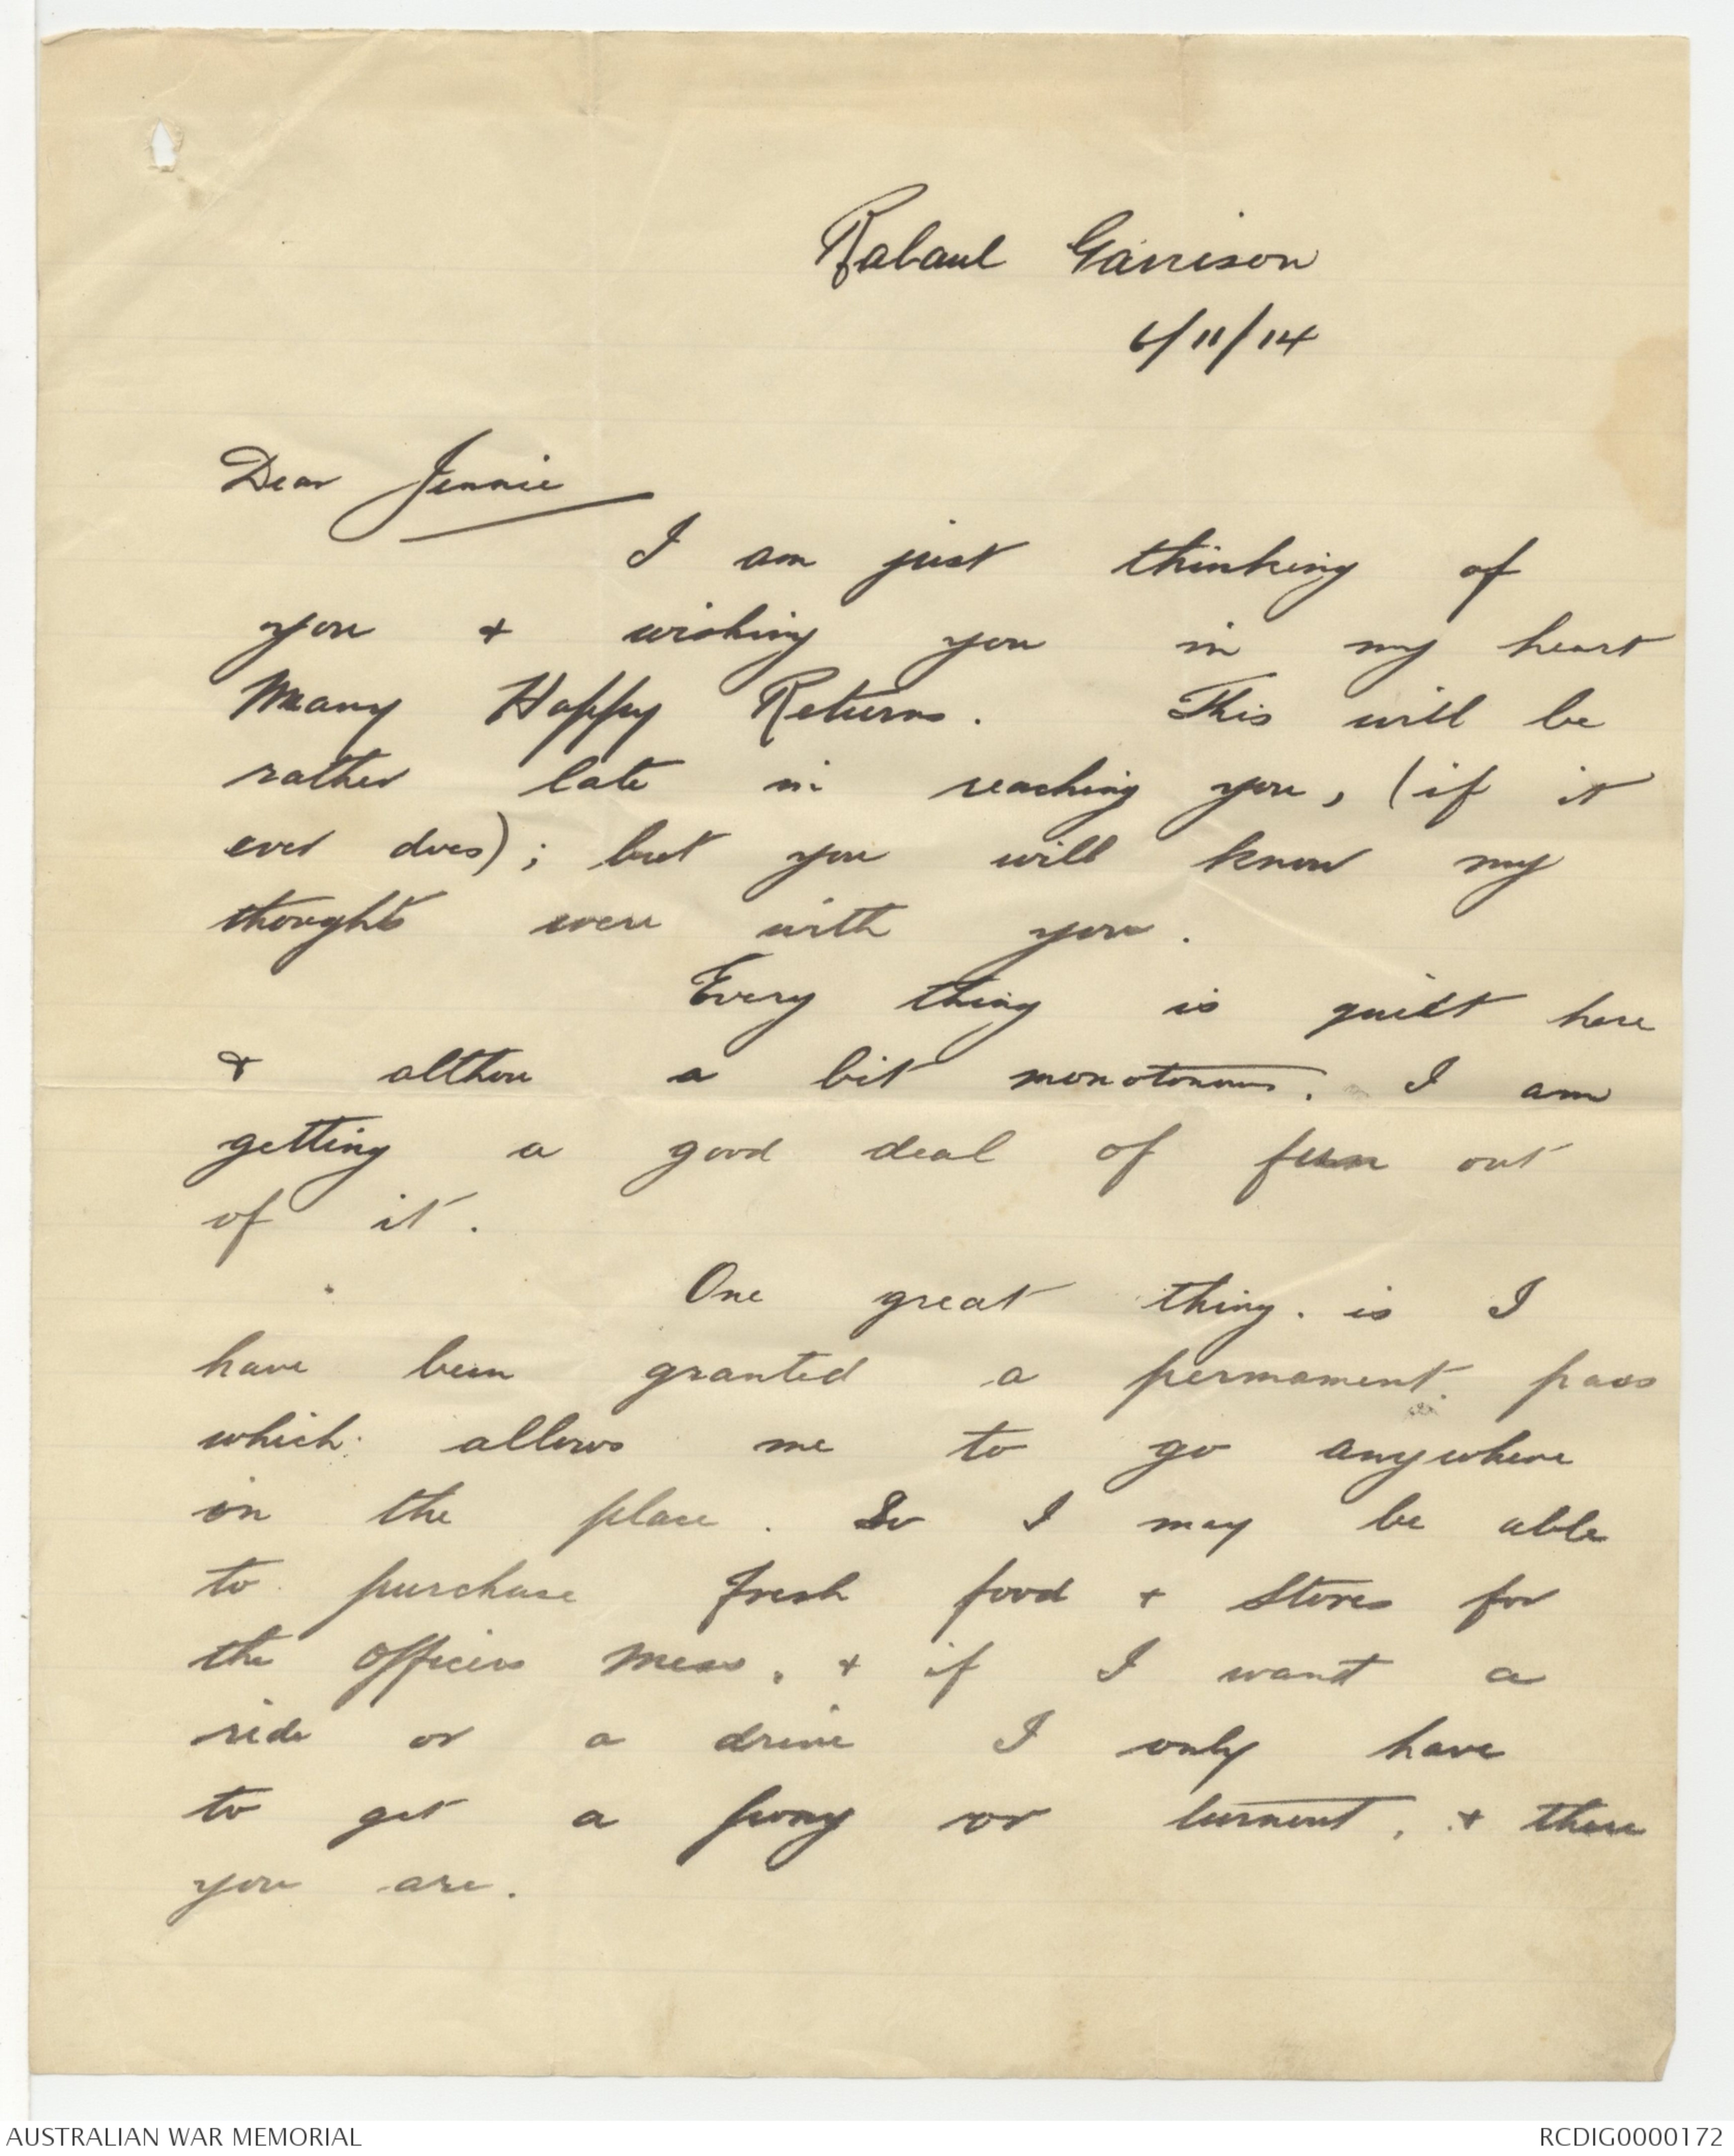 Rabaul Garrison
6/11/14
Dear Jennie
I am just thinking of
you & wishing you in my heart
Many Happy Returns. This will be
rather late in reaching you, (if it
ever does); but you will know my
thoughts were with you.
Every thing is quiet here
& althou a bit monotonous. I am
getting a good deal of fun out
of it.
One great thing. is I
have been granted a permament pass
which allows me to go anywhere
in the place. So I may be able
to purchase fresh food & Stores for
the Officers Mess, & if I want a
ride or a drive I only have
to get a pony or turnout, & there
you are.
AUSTRALIAN WAR MEMORIAL
RCDIG0000172